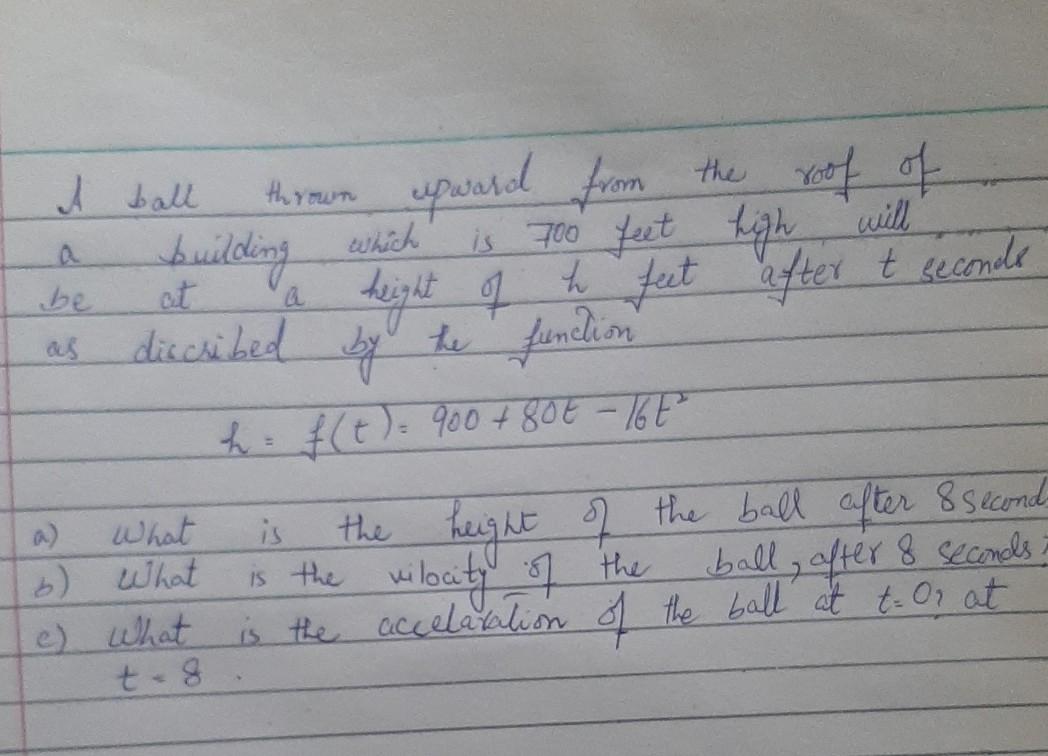 A ball thrown upward from the roof of
a building which is 700 feet high will
be at a height of h feet after t seconds
as discribed by the function
h = f(t) = 900 + 80t - 16t²
a) What is the height of the ball after 8 second
b) What is the vilocity of the ball, after 8 seconds?
c) What is the accelaration of the ball at t=0? at
t = 8 .